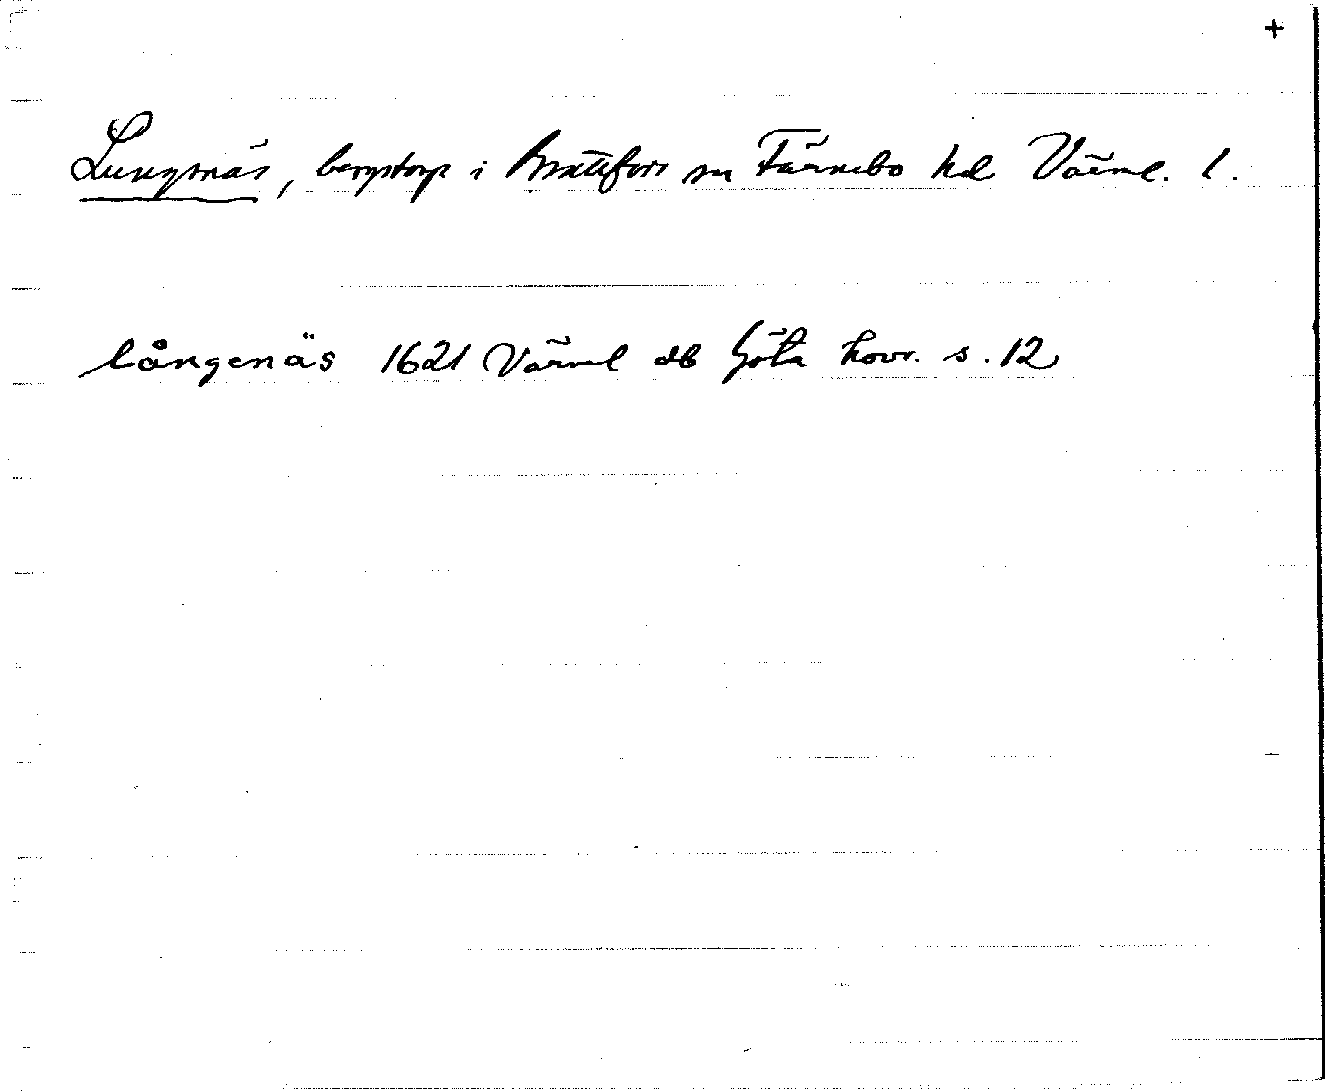 +
Lungsnäs, bergstorp i Brattfors sn Färnebo hd Värml. l.
långenäs 1621 Värml db Göta hovr. s. 12